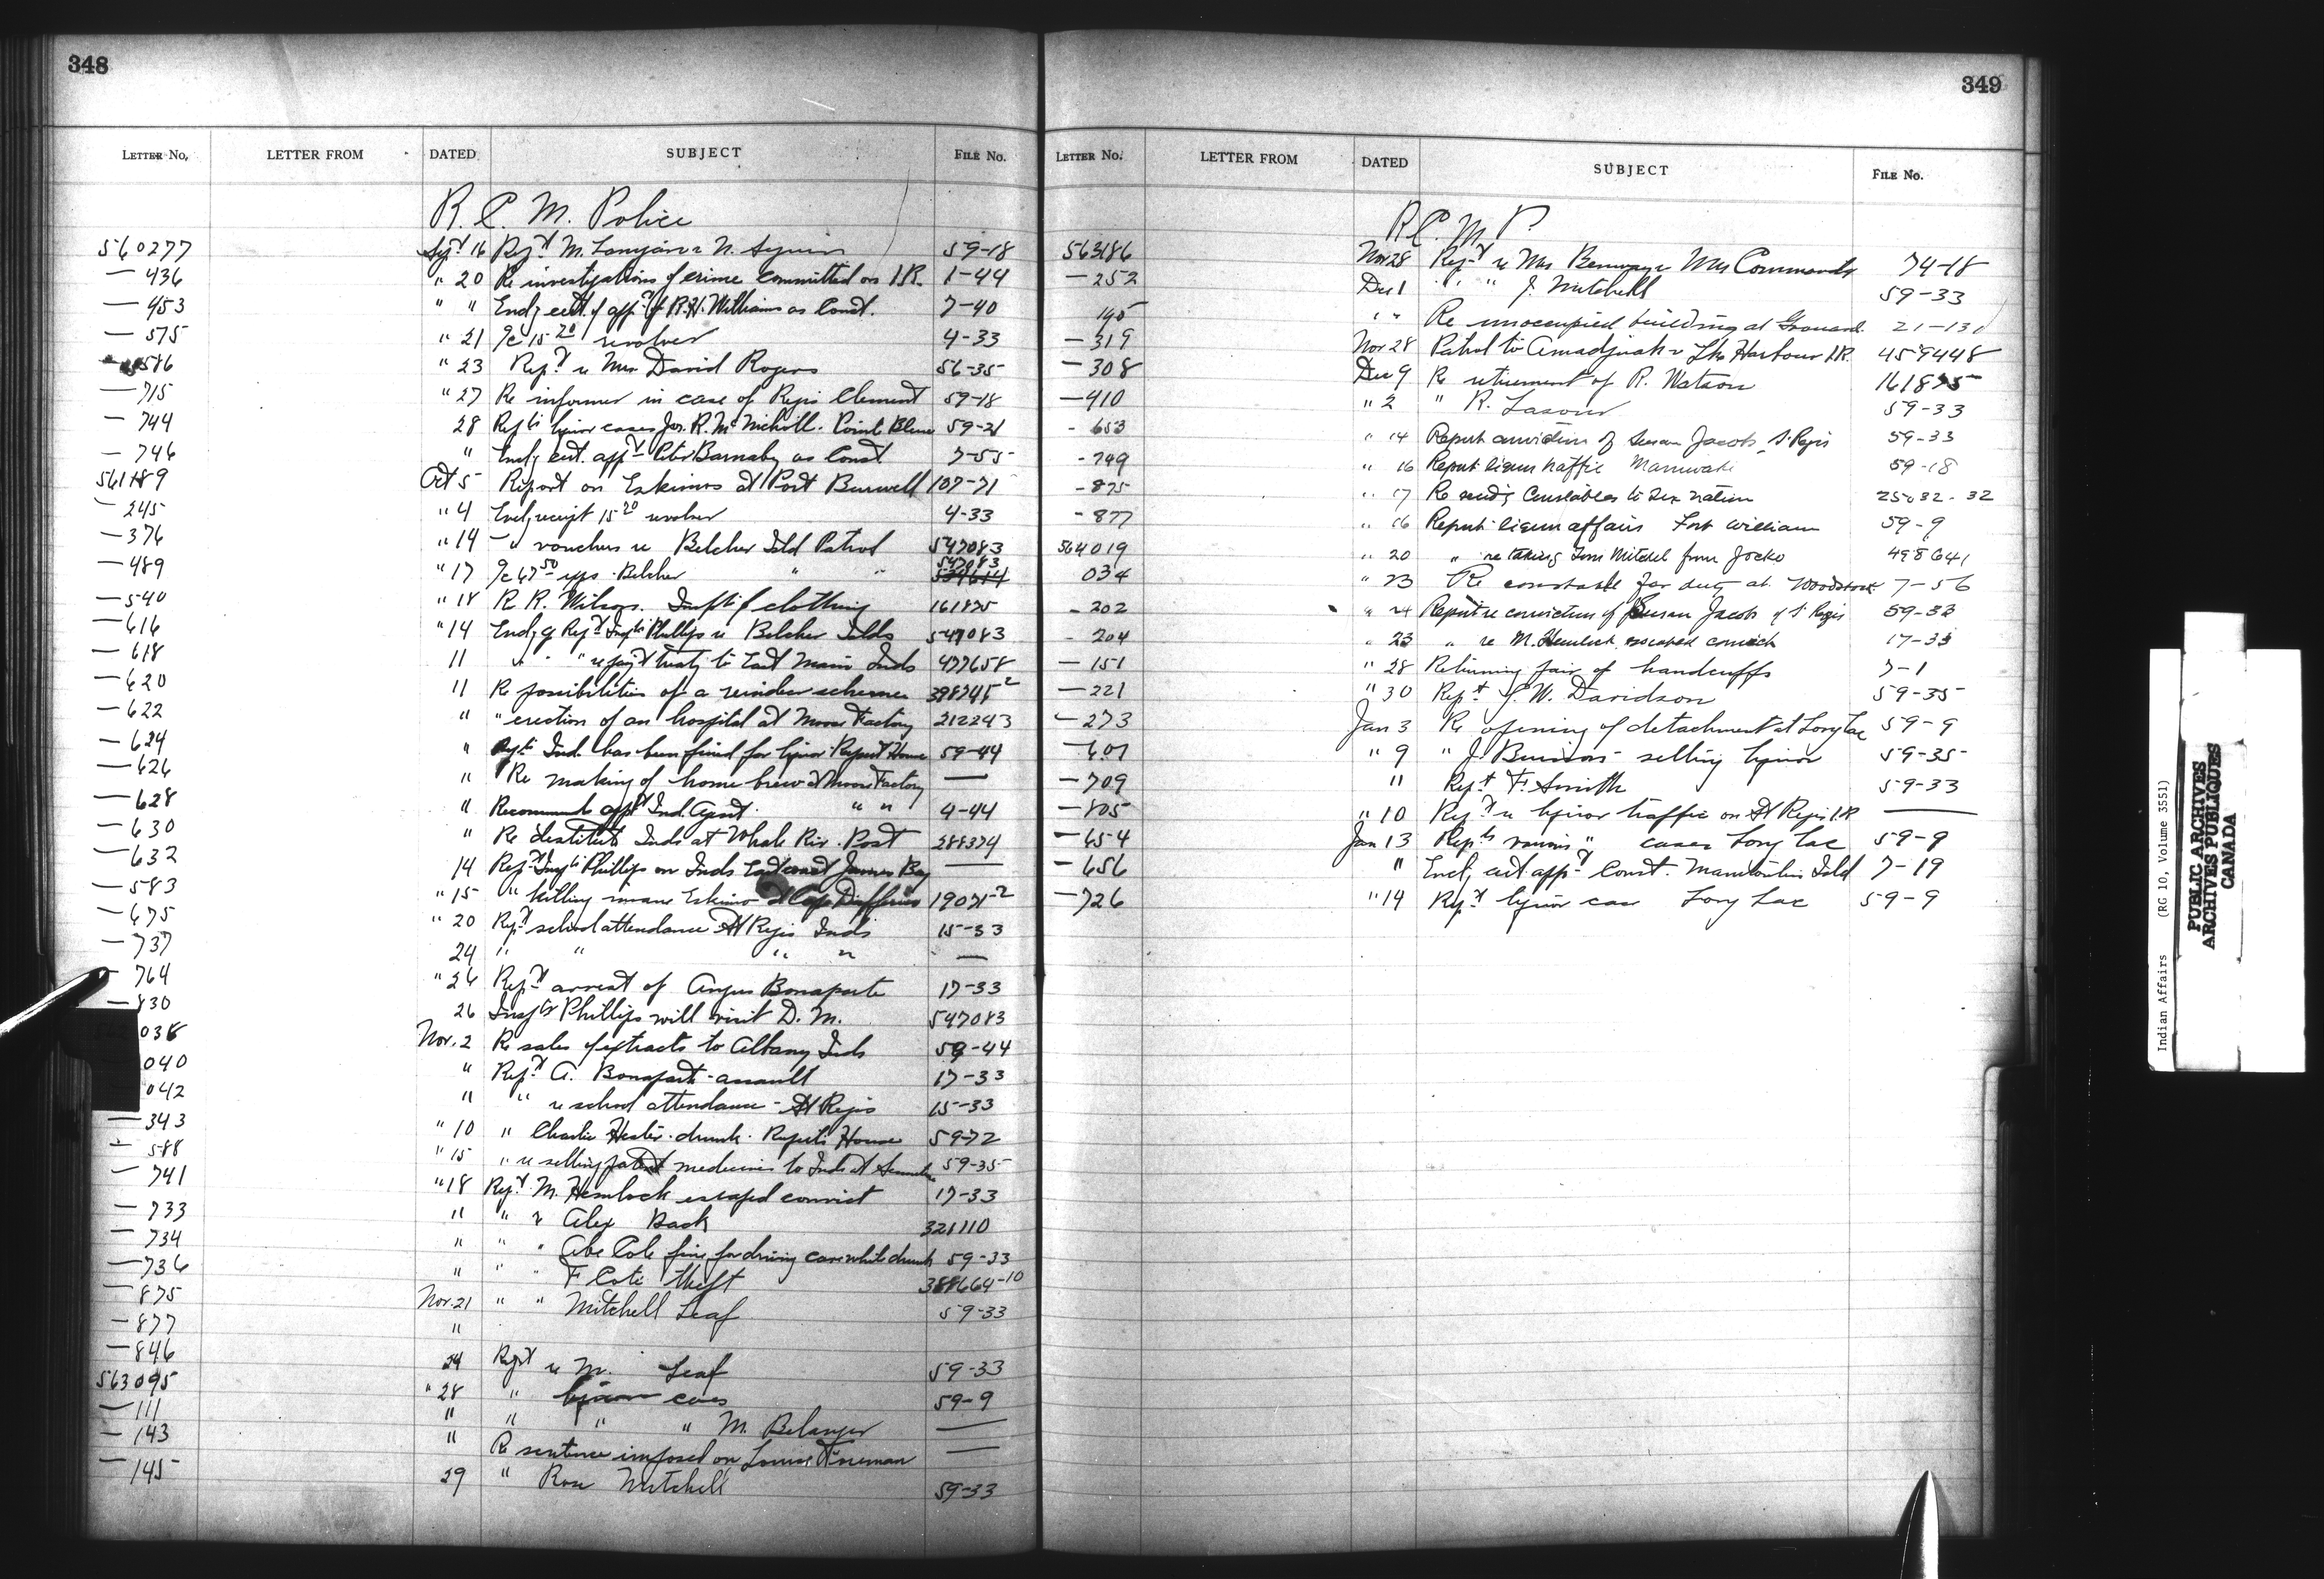 348
LETTER No. LETTER FROM DATED SUBJECT FILE No.
R. C. M. Police
560277 Sept 16 Rept M. N. 59-18
— 436 " 20 Re investigations of crime committed on I.R. 1-44
— 453 " " Encl'g cert. of app't of R.H. Williams as Const. 7-40
— 575 " 21 a/c 15.20 revolver 4-33
586 " 23 Rep't re Mrs David Rogers 56-35
— 715 " 27 Re informer in case of Regis Clement 59-18
— 744 28 liquor cases Jos. R. McNicholl. Point Bleue 59-21
— 746 " Encl'g cert. app't Peter Barnaby as Const. 7-55
561189 Oct 5 Report on Eskimos at Port Burwell 107-71
— 245 " 4 Encl'g receipt 15.20 revolver 4-33
— 376 " 14 — vouchers re Belcher Isld Patrol 547083
— 489 " 17 a/c 67.50 exps. Belcher " " 547083
— 540 " 18 Re R. Wilson. of clothing 161875
— 616 " 14 Encl'g Rep't Insp'tr Phillips re Belcher Islds 547083
— 618 11 " " " re pay't treaty to East Main Inds 477658
— 620 11 Re possibilities of a reindeer scheme 398745-2
— 622 " " erection of an hospital at Moose Factory 212243
— 624 " Ind. has been fined for liquor Rupert House 59-44
— 626 " Re making of home brew at Moose Factory —
— 628 " Recommends app't Ind. Agent " " 4-44
— 630 " Re destitute Inds at Whale Riv. Post 288374
— 632 14 Rep't Insp'tr Phillips on Inds East coast James Bay —
— 583 " 15 " killing insane Eskimo at Cape Dufferin 19071-2
— 675 " 20 Rep't school attendance St Regis Inds 15-33
— 737 24 " " " " —
— 764 " 26 Rep't arrest of Angus Bonaparte 17-33
— 830 26 Insp'tr Phillips will visit D. M. 547083
038 Nov. 2 Re sales of extracts to Albany Inds 59-44
040 " Rep't A. Bonaparte - assault 17-33
042 11 " re school attendance - St Regis 15-33
— 343 " 10 " Charlie Hester. drunk. Ruperts House 59-72
— 588 " 15 " re selling patent medicines to Inds at 59-35
— 741 " 18 Rep't M. Hemlock escaped convict 17-33
— 733 11 " " Alex Back 321110
— 734 " " " Abe Cole fine for driving car while drunk 59-33
— 736 " " " F Cote theft 388664-10
— 875 Nov. 21 " " Mitchell Leaf 59-33
— 877 11
— 846 24 Rep't re M. Leaf 59-33
563095 " 28 " liquor cases 59-9
— 111 " " " " M. Belanger —
— 143 11 Re sentence imposed on Louise —
— 145 29 " Rose Mitchell 59-33
349
LETTER No. LETTER FROM DATED SUBJECT FILE No.
R C. M. P.
563186 Nov 28 Rep't re Mrs & Mrs Commando 74-18
— 252 Dec 1 " " J. Mitchell 59-33
195 " " Re unoccupied building at Grouard. 21-131
— 319 Nov 28 Patrol to Amadjuak & Lke Harbour I.R. 459448
— 308 Dec 9 Re retirement of R. Watson 161875
— 410 " 2 " R. Lazour 59-33
- 653 " 14 Report conviction of Susan Jacob St Regis 59-33
- 749 " 16 Report liquor traffic Maniwaki 59-18
- 875 " 17 Re sending Constables to Six nation 25032-32
- 877 " 16 Report liquor affairs Fort William 59-9
564019 " 20 " re taking Tom Mitchel from Jocko 498641
034 " 23 Re constable for duty at Woodstock 7-56
- 202 " 24 Report re conviction of Susan Jacob of St Regis 59-33
- 204 " 23 " re M. Hemlock, escaped convict 17-33
— 151 " 28 Returning pair of handcuffs 7-1
— 221 " 30 Rep't J. W. Davidson 59-35
— 273 Jan 3 Re opening of detachment at Long Lac 59-9
— 601 " 9 " J. selling liquor 59-35
— 709 " Rep't F. Smith 59-33
— 805 " 10 Rep't re liquor traffic on St Regis I.R. —
— 654 Jan 13 Rep'ts various " cases Long Lac 59-9
— 656 " Encl'g cert app't Const. Manitoulin Isld 7-19
— 726 " 14 Rep't liquor case Long Lac 59-9
Indian Affairs (RG 10, Volume 3551)
PUBLIC ARCHIVES
ARCHIVES PUBLIQUES
CANADA